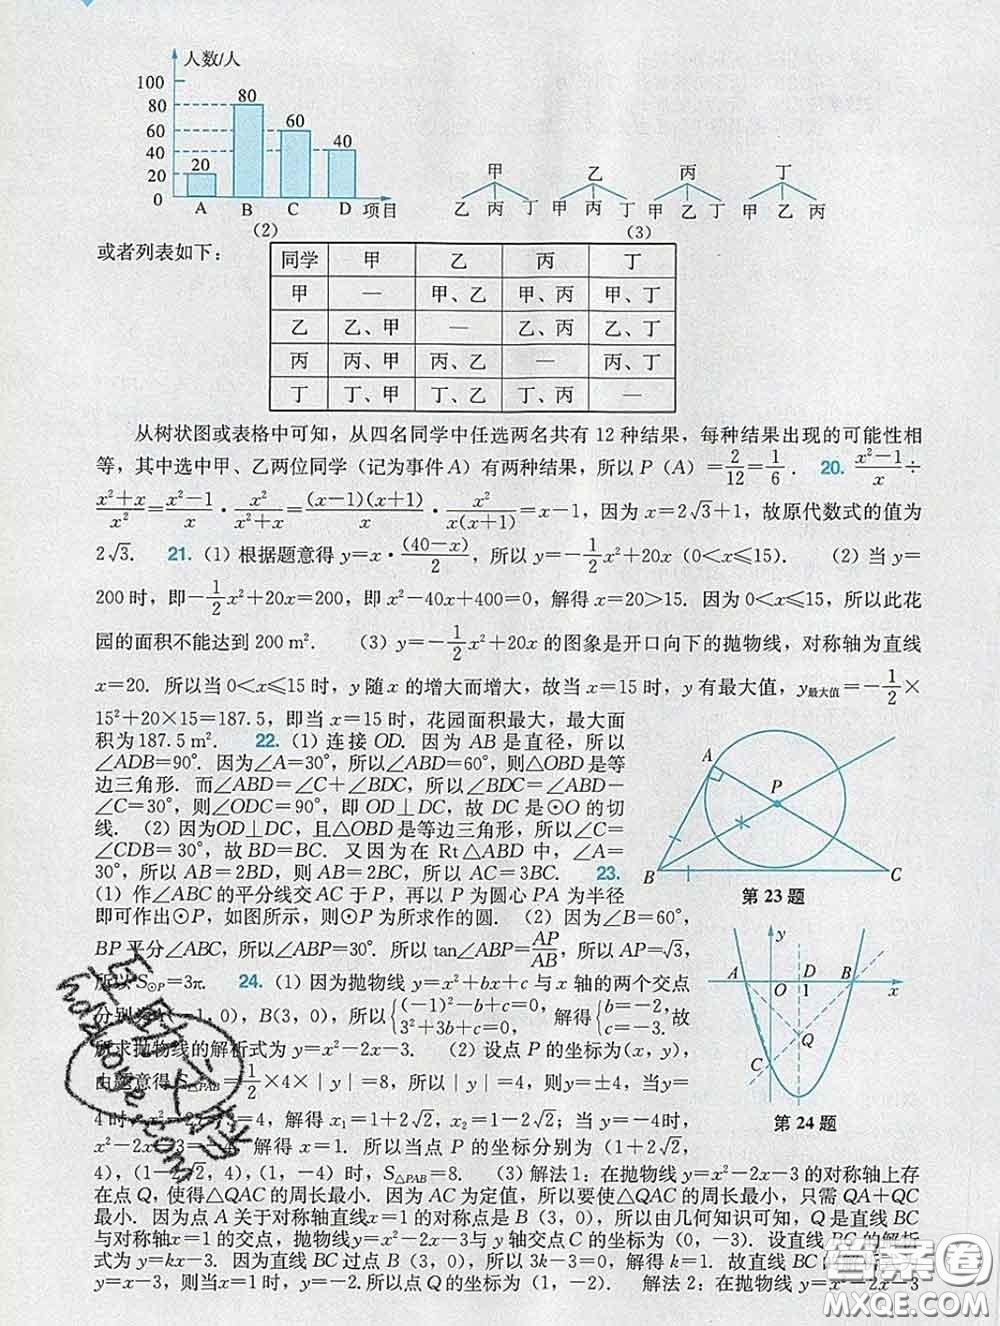 人数/人
100
80
60
40
20
0
20
80
60
40
A B C D 项目
(2)
甲 乙 丙 丁
乙 丙 丁 甲 丙 丁 甲 乙 丁 甲 乙 丙
(3)
或者列表如下：
同学 甲 乙 丙 丁
甲 — 甲、乙 甲、丙 甲、丁
乙 乙、甲 — 乙、丙 乙、丁
丙 丙、甲 丙、乙 — 丙、丁
丁 丁、甲 丁、乙 丁、丙 —
从树状图或表格中可知，从四名同学中任选两名共有 12 种结果，每种结果出现的可能性相
等，其中选中甲、乙两位同学（记为事件 A）有两种结果，所以 P（A）=2/12=1/6． 20. (x²−1)/x÷
(x²+x)/x²=(x²−1)/x·x²/(x²+x)=(x−1)(x+1)/x·x²/x(x+1)=x−1，因为 x=2√3+1，故原代数式的值为
2√3． 21.（1）根据题意得 y=x·(40−x)/2，所以 y=−1/2x²+20x（0<x⩽15）．（2）当 y=
200 时，即−1/2x²+20x=200，即 x²−40x+400=0，解得 x=20>15．因为 0<x⩽15，所以此花
园的面积不能达到 200 m²．（3）y=−1/2x²+20x 的图象是开口向下的抛物线，对称轴为直线
x=20．所以当 0<x⩽15 时，y 随 x 的增大而增大，故当 x=15 时，y 有最大值，y最大值=−1/2×
15²+20×15=187.5，即当 x=15 时，花园面积最大，最大面
积为187.5 m²． 22.（1）连接 OD．因为 AB 是直径，所以
∠ADB=90°．因为∠A=30°，所以∠ABD=60°，则△OBD 是等
边三角形．而∠ABD=∠C+∠BDC，所以∠BDC=∠ABD−
∠C=30°，则∠ODC=90°，即 OD⊥DC，故 DC 是⊙O 的切
线．（2）因为OD⊥DC，且△OBD 是等边三角形，所以∠C=
∠CDB=30°，故 BD=BC．又因为在 Rt△ABD 中，∠A=
30°，所以 AB=2BD，则 AB=2BC，所以 AC=3BC． 23.
（1）作∠ABC 的平分线交 AC 于 P，再以 P 为圆心 PA 为半径
即可作出⊙P，如图所示，则⊙P 为所求作的圆．（2）因为∠B=60°，
BP 平分∠ABC，所以∠ABP=30°．所以 tan∠ABP=AP/AB，所以 AP=√3，
所以 S⊙P=3π． 24.（1）因为抛物线 y=x²+bx+c 与 x 轴的两个交点
分别为 1，0），B（3，0），所以{(−1)²−b+c=0，3²+3b+c=0，解得{b=−2，c=−3．故
所求抛物线的解析式为 y=x²−2x−3．（2）设点 P 的坐标为（x，y），
由题意得 S△PAB=1/2×4×|y|=8，所以 |y|=4，则 y=±4，当 y=
4时 x²−2 =4，解得 x₁=1+2√2，x₂=1−2√2；当 y=−4时，
x²−2x−3=−4，解得 x=1．所以当点 P 的坐标分别为（1+2√2，
4），（1−2√2，4），（1，−4）时，S△PAB=8．（3）解法 1：在抛物线 y=x²−2x−3 的对称轴上存
在点 Q，使得△QAC 的周长最小．因为 AC 为定值，所以要使△QAC 的周长最小，只需 QA+QC
最小．因为点 A 关于对称轴直线x=1 的对称点是 B（3，0），所以由几何知识可知，Q 是直线 BC
与对称轴x=1 的交点，抛物线y=x²−2x−3与 y 轴交点 C 的坐标为（0，−3）．设直线 BC 的解析
式为 y=kx−3．因为直线 BC 过点 B（3，0），所以 3k−3=0，解得 k=1．故直线 BC 的解析式为
y=x−3，则当 x=1时，y=−2.所以点 Q 的坐标为（1，−2）． 解法 2：在抛物线 y=x²−2x−3
A P B C
第 23 题
y A O D 1 B x C Q
第 24 题
答案卷
MXQE.COM